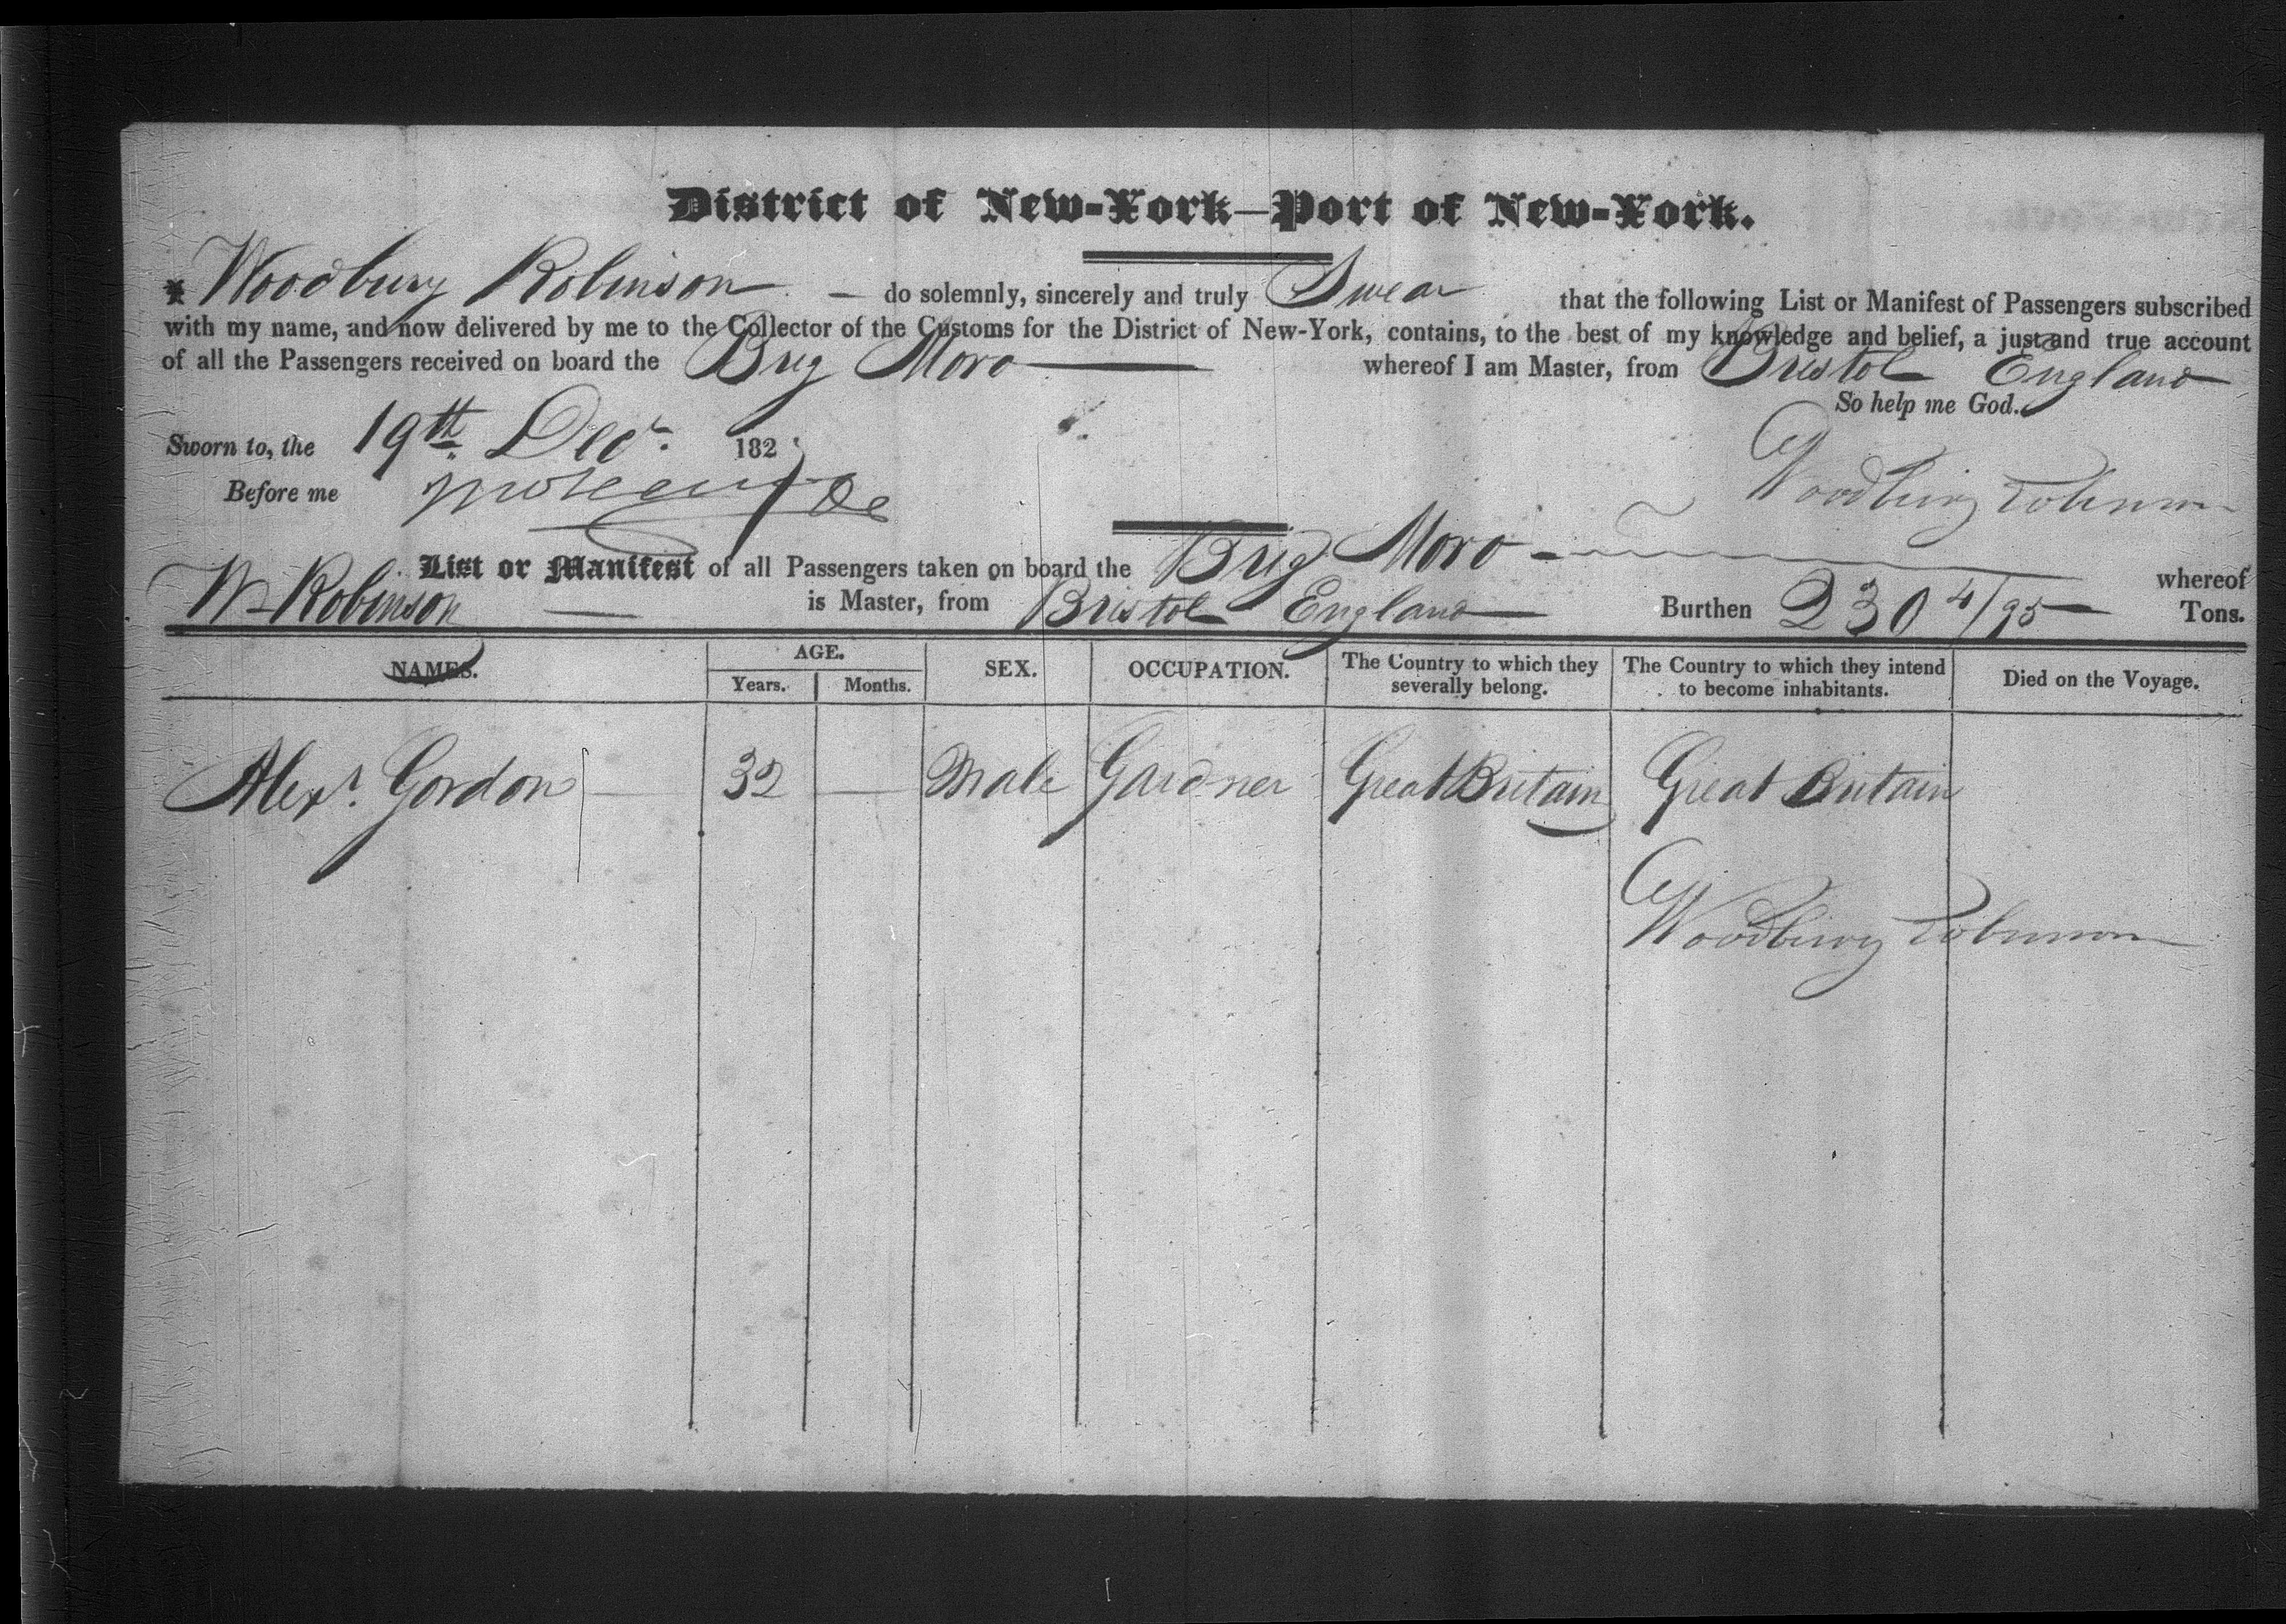 District of New-York—Port of New-York.
I Woodbury Robinson — do solemnly, sincerely and truly Swear that the following List or Manifest of Passengers subscribed
with my name, and now delivered by me to the Collector of the Customs for the District of New-York, contains, to the best of my knowledge and belief, a just and true account
of all the Passengers received on board the Brig Moro — whereof I am Master, from Bristol England
So help me God.
Sworn to, the 19th Decr. 182
Before me
Woodbury Robinson
List or Manifest of all Passengers taken on board the Brig Moro — whereof
W Robinson — is Master, from Bristol England — Burthen 230 4/95 — Tons.
NAMES. AGE. SEX. OCCUPATION. The Country to which they severally belong. The Country to which they intend to become inhabitants. Died on the Voyage.
Years. Months.
Alexr. Gordon — 32 — Male Gardner Great Britain Great Britain
Woodbury Robinson